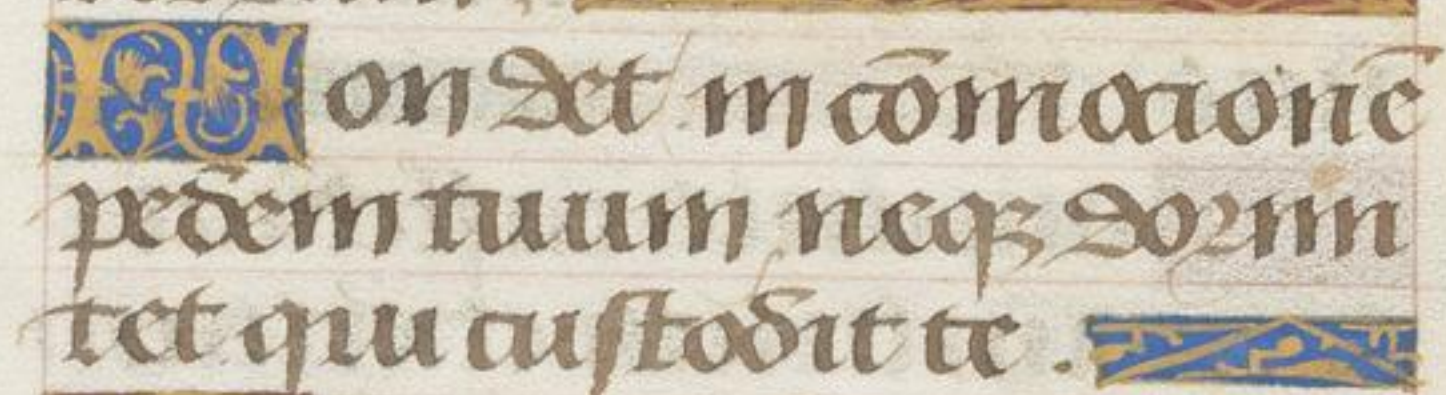 Non det in cōmocionē
pedem tuum neqꝫ dormi
tet qui custodit te .